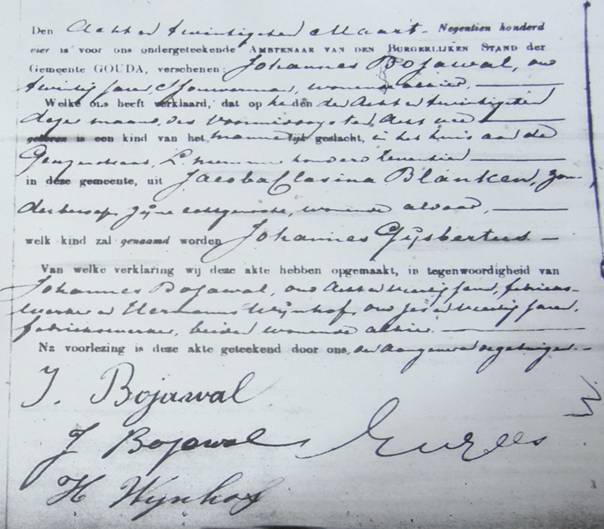 Den Acht en twintigsten Maart Negentien honderd
vier is voor ons ondergeteekende Ambtenaar van den Burgerlijken Stand der
Gemeente GOUDA, verschenen: Johannes Bojawal, oud
twintig jaren, wonende alhier,
Welke ons heeft verklaard, dat op heden de Acht en twintigsten
dezer maand, des voormiddags ten
geboren is een kind van het mannelijk geslacht, in het huis aan de
L nummer honderd
in deze gemeente, uit Jacoba Clasina Blanken, zon
der beroep, zijne echtgenoote, wonende aldaar,
welk kind zal genaamd worden Johannes Gijsbertus
Van welke verklaring wij deze akte hebben opgemaakt, in tegenwoordigheid van
Johannes Bojawal, oud jaren, fabrieks-
werker en Hermanus Wijnhof, oud jaren,
fabriekswerker, beiden wonende alhier
Na voorlezing is deze akte geteekend door ons, de aangever en getuigen.
J. Bojawal
J Bojawal
H Wijnhof